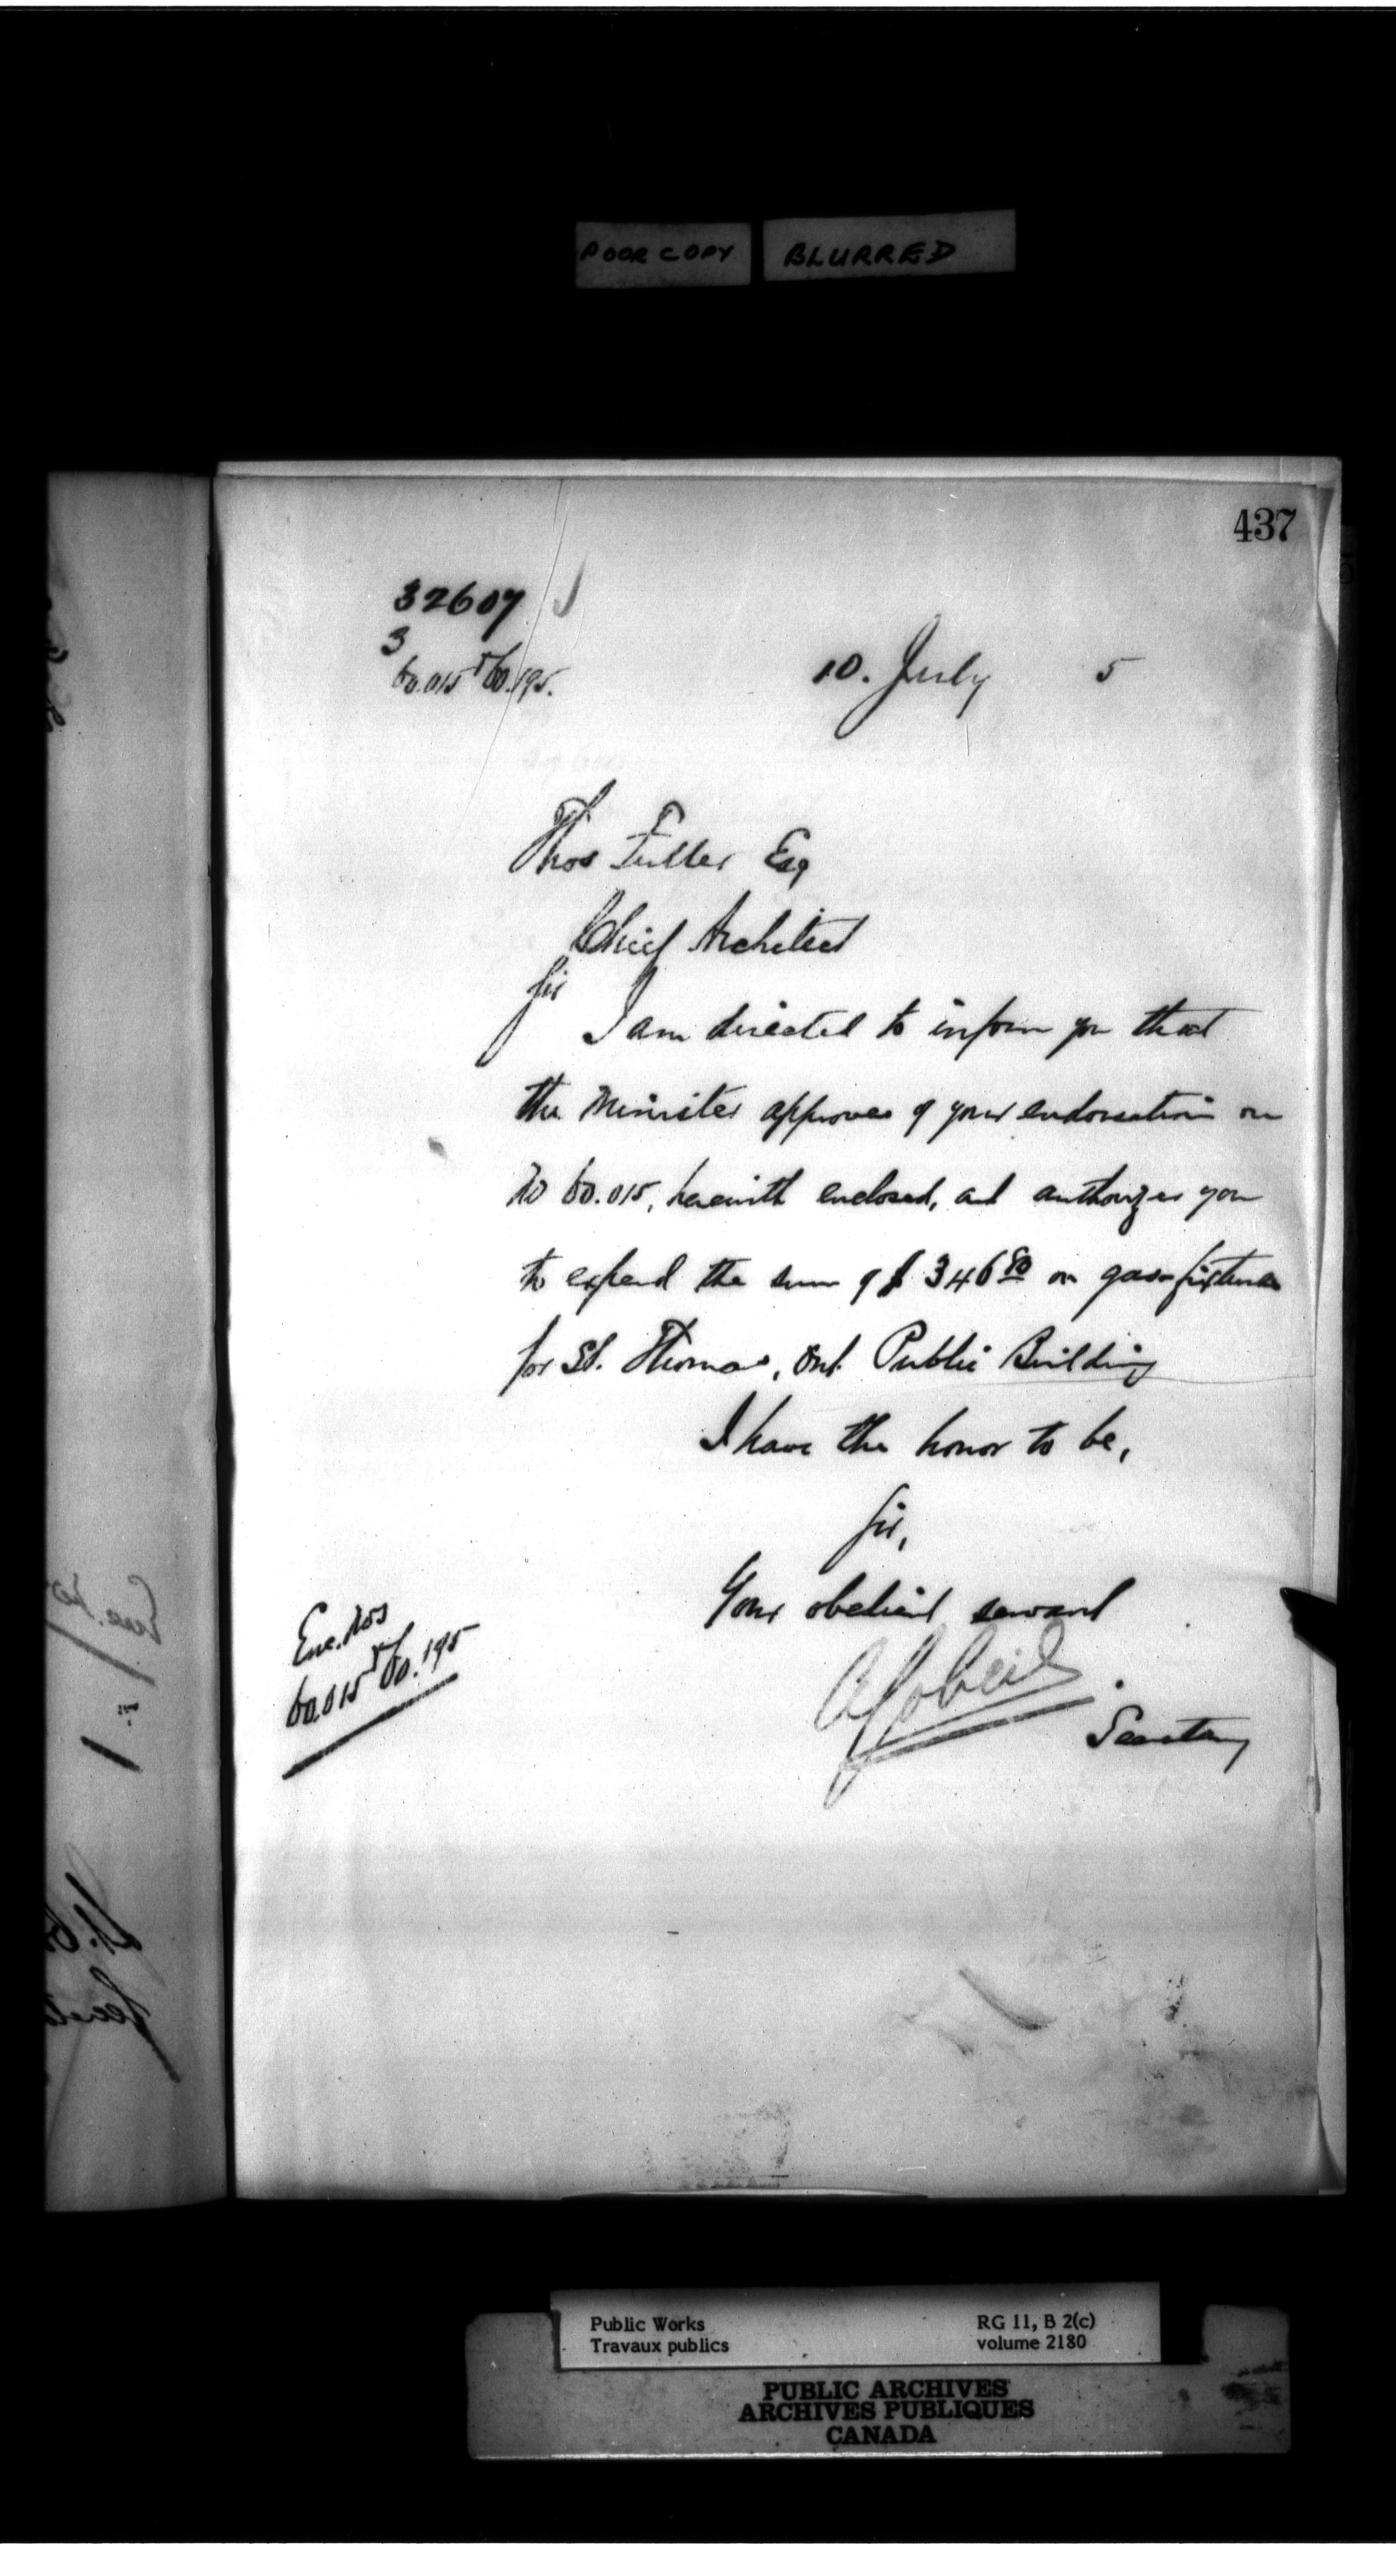 POOR COPY BLURRED
437
32607
3
60.015 & 60.195.
10. July 5
Thos Fuller Esq
Chief Architect
Sir
I am directed to inform you that
the Minister approves of your endorsation on
No 60.015, herewith enclosed, and authorizes you
to expend the sum of $ 346 80 on gas-fixtures
for St. Thomas, Ont. Public Building
I have the honor to be,
Sir,
Your obedient servant
A Gobeil
Secretary
Enc. Nos
60.015 & 60.195
Public Works RG 11, B 2(c)
Travaux publics volume 2180
PUBLIC ARCHIVES
ARCHIVES PUBLIQUES
CANADA